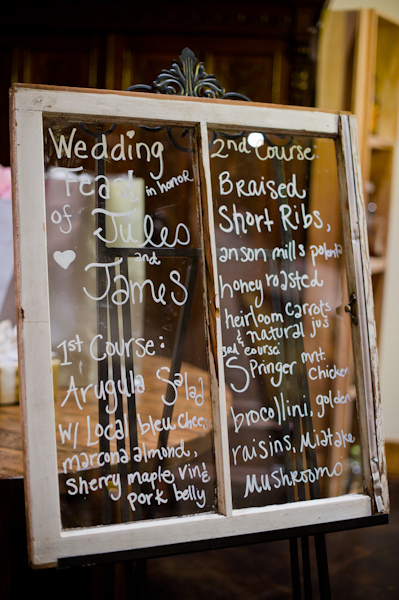 Wedding
Feast in honor
of Jules
and
James
1st Course:
Arugula Salad
w/ Local bleu chee.
marcona almond,
sherry maple vin &
pork belly
2nd Course:
Braised
Short Ribs,
anson mills polenta
honey roasted
heirloom carrots
& natural jus
3rd course:
Springer mnt.
Chicken
brocollini, golden
raisins, Miatake
Mushrooms